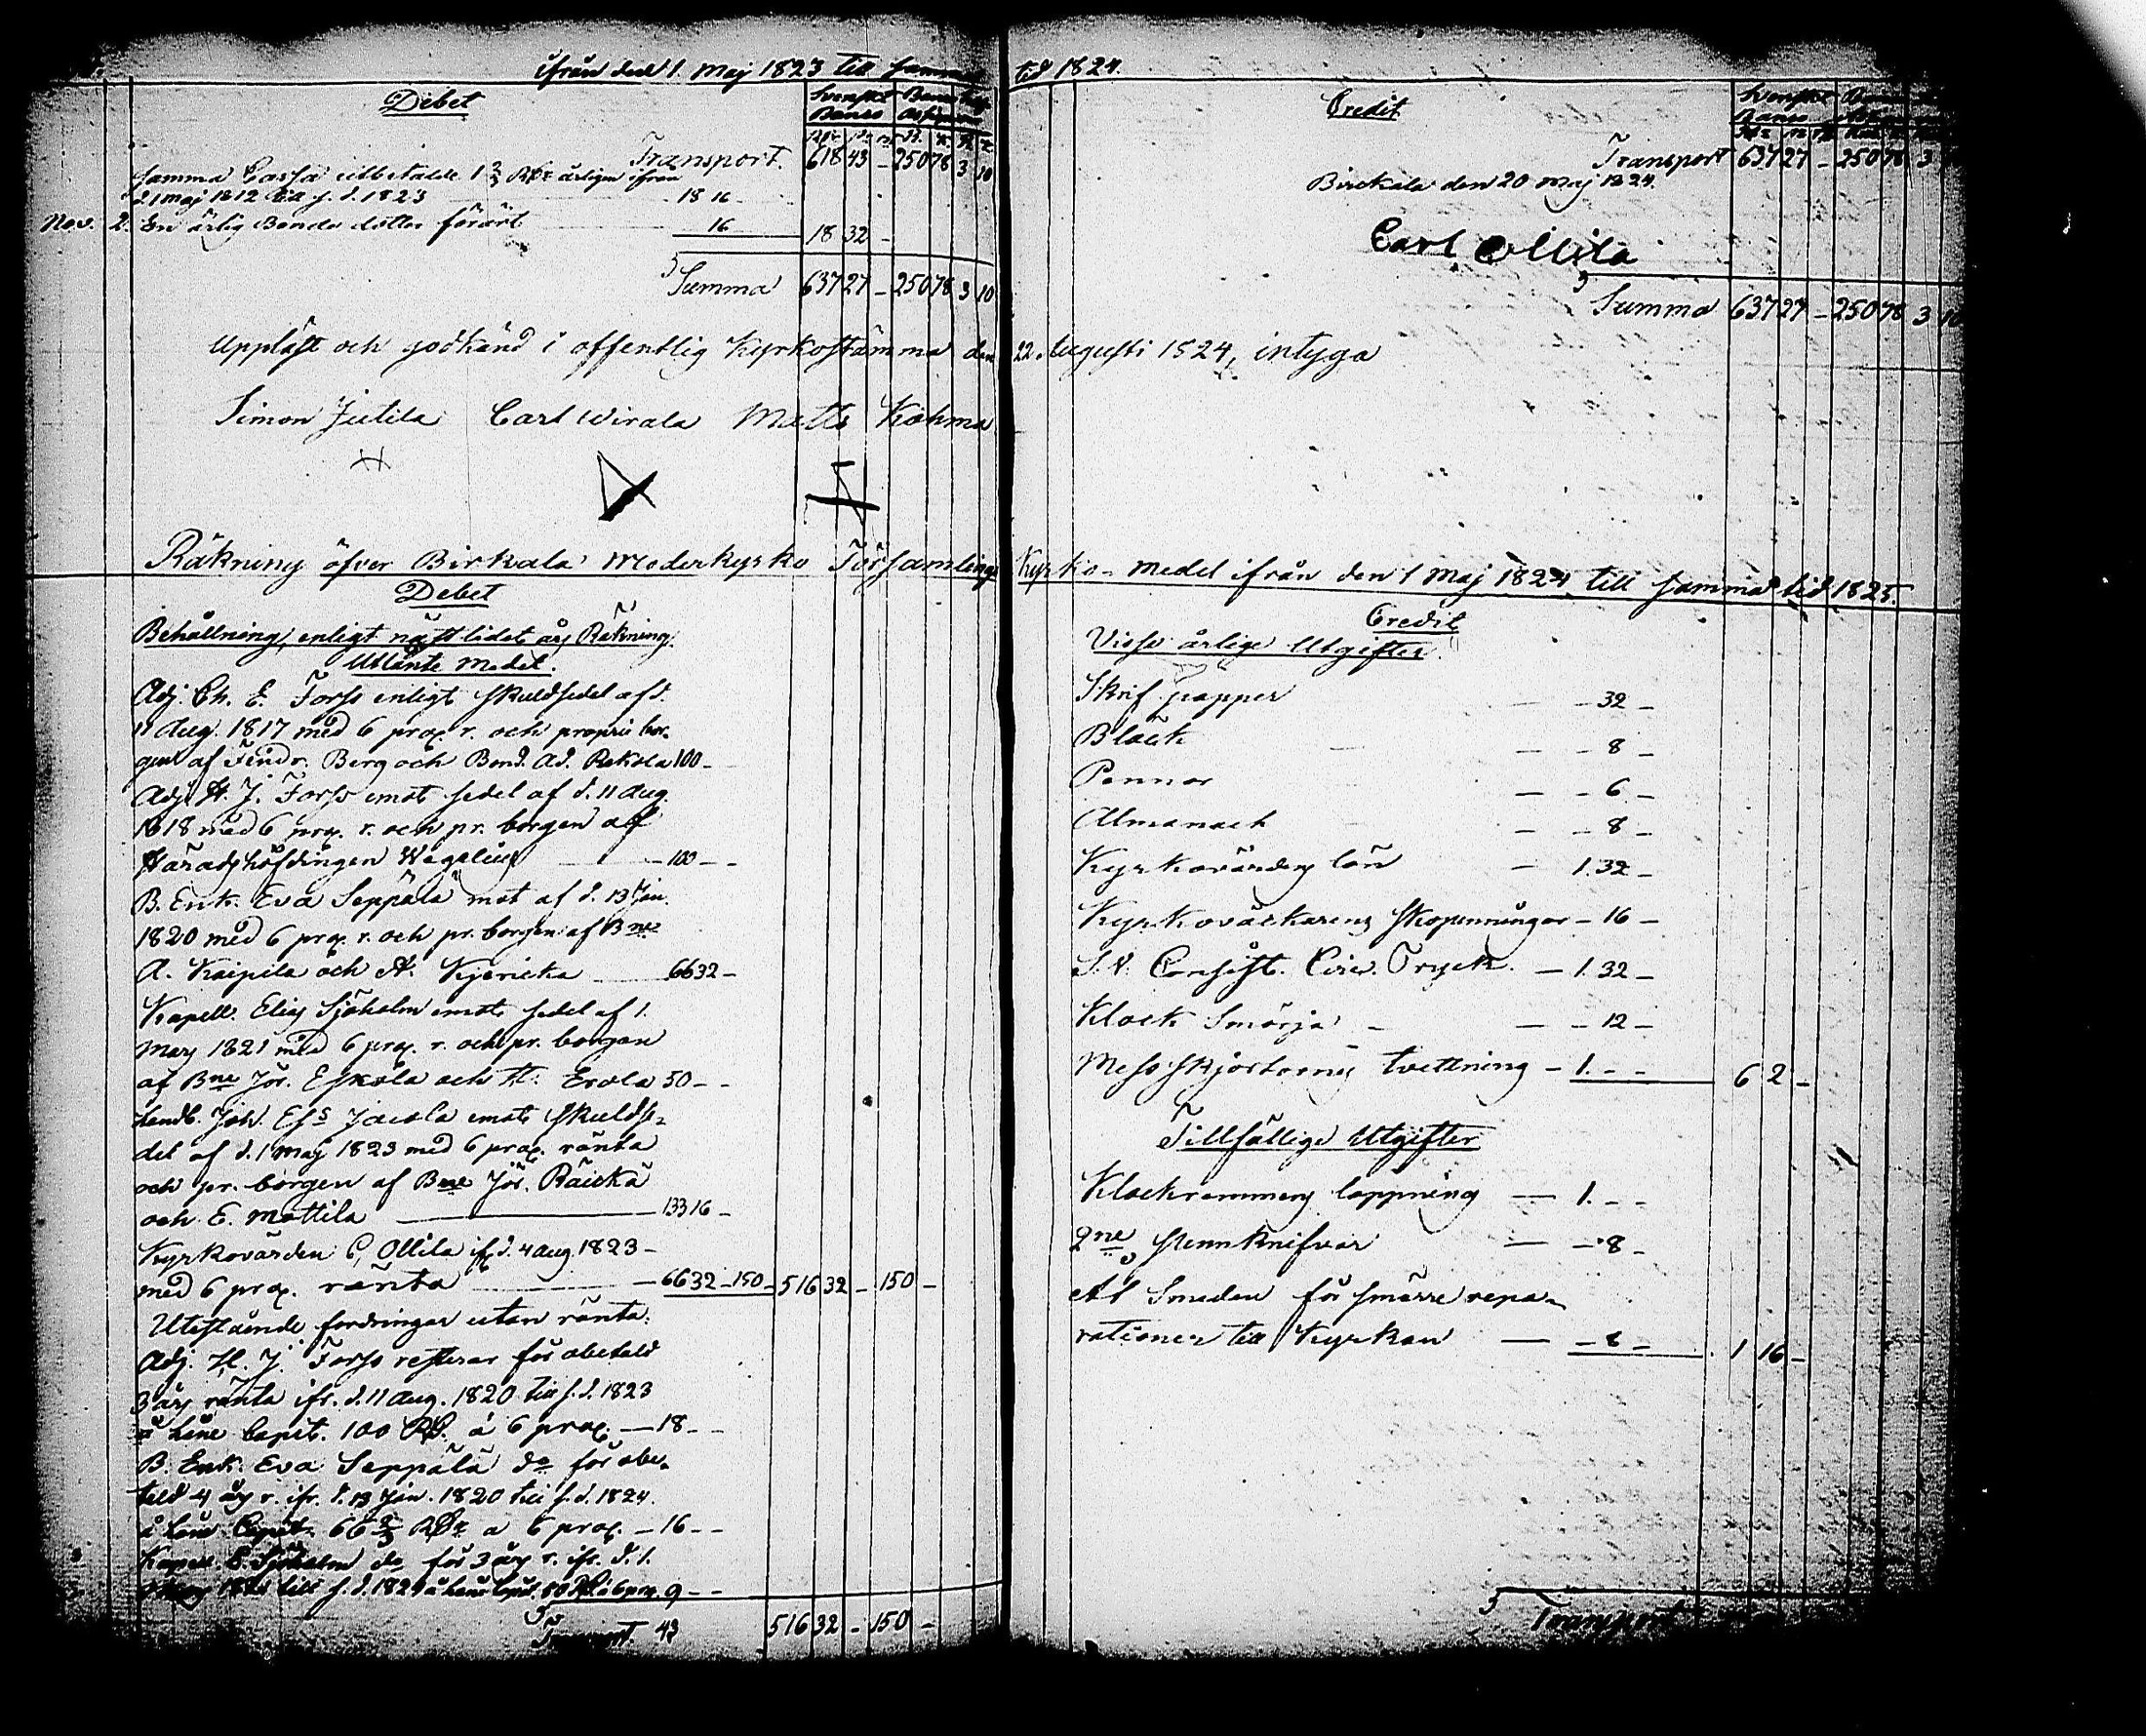 ifrån den 1. Maj 1823 till samma
Debet
Svenskt Banco
Banco
Transport. 618 43 - 250 78 3 10
samma Cassa utbetalde 1 2/3 Rdr årligen ifrån
d. 1 Maj 1812 till s. d. 1823 18 16 -
Nov. 2. En ärlig Bonde dotter förärt 16 18 32 -
Summa 637 27 - 250 78 3 10
Uppläst och godkänd i offentlig Kyrkostämma den
Simon Jutila Carl Wirala Matts Kohma
Räkning öfver Birkala Moderkyrko Församlings
Debet
Behållning, enligt näst lidet års Räkning.
Utlånte Medel.
Adj. Ch. E. Forss enligt skuldsedel af d.
11 Aug. 1817 med 6 proc. r. och proprie bor-
gen af Fendr. Berg och Bond. Ad. Rekola 100 -
Adj. H. J. Forss emot sedel af d. 11 Aug.
1818 med 6 proc. r. och pr. borgen af
Häradshöfdingen Wegelius 100 - -
B. Enk. Eva Seppälä mot af d. 13 Jan.
1820 med 6 proc. r. och pr. borgen af Bne
A. Kaipila och H. Kyericka 66 32 -
Kapell. Elias Sjöholm emot sedel af 1.
Mars 1821 med 6 proc. r. och pr. borgen
af Bne Jör. Eskola och H. Erola 50 - -
Landb. Joh. Ess Jacola emot skuldse-
del af d. 1 Maj 1823 med 6 proc. ränta
och pr. borgen af Bne Jör. Räickä
och E. Mattila 133 16 -
Kyrkovärden C. Ollila if. d. 4 Aug. 1823 -
med 6 proc. ränta 66 32 - 150 - 516 32 - 150 -
Utestående fordringar utan ränta.
Adj. H. J. Forss resterar för obetald
3 års ränta ifr. d. 11 Aug. 1820 till s. d. 1823
å låne Capit. 100 Rd. á 6 proc. - 18 - -
B. Enk. Eva Seppälä do för obe-
tald 4 års r. ifr. d. 13 Jan. 1820 till s. d. 1824.
å låne Capit. 66 2/3 Rdr a 6 proc. - 16 - -
Kapell. E. Sjöholm do för 3 års r. ifr. d. 1.
Mars 1821 till s. d. 1824 å låne Capit. 50 Rd. á 6 proc. 9 - -
Transport. 43 516 32 - 150 -
tid 1824.
Credit
Svenskt
Banco
Transport 637 27 - 250 78 3
Birckala den 20 Maj 1824.
Carl Ollila
Summa 637 27 - 250 78 3 10
22. Augusti 1824, intyga
Kyrko- Medel ifrån den 1 Maj 1824 till samma tid 1825.
Credit
Visse årlige Utgifter.
Skrif papper - - 32 -
Bläck - - 8 -
Pennor - - 6 -
Almanach - - 8 -
Kyrkovärdens lön - 1. 32 -
Kyrkoväckarens skopenningar - 16 -
S. V. Consist. Circ. Tryck. - 1. 32 -
Klock Smörja - - - 12 -
Messskjortornes tvettning - 1. - - 6 2 -
Tillfällige Utgifter
Klockremmens lappning - 1. - -
2ne Pennknifvar - - 8 -
At Smeden för smärre repa-
rationer till Kyrkan - - 8 - 1 16 -
Transport